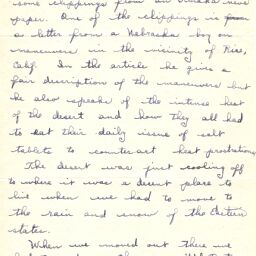 some clippings from an Omaha news
paper. One of the clippings is from
a letter from a Nebraska boy on
maneuvers in the vicinity of Rice,
Calif. In the article he gives a
fair description of the maneuvers but
he also speaks of the intense heat
of the desert and how they all had
to eat their daily issue of salt
tablets to counteract heat prostrations.
The desert was just cooling off
to where it was a decent place to
live when we had to move to
the rain and snow of the Eastern
states.
When we moved out there we